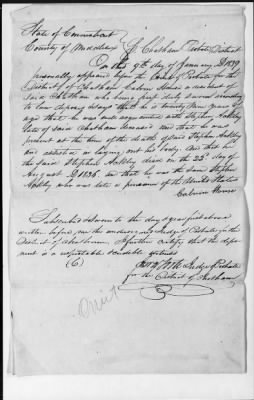 State of Connecticut
County of Middlesex } Chatham Probate District
On this 9th day of January AD 1839
personally appeared before the Court of Probate for the
District of Chatham Calvin Hurse a resident of
said Chatham and being first duly sworn according
to law deposes & says that he is twenty years
aged that he was well acquainted with Stephen Ackley
late of said Chatham deceased and that he was
present at the time of the death of said Stephen Ackley
and assisted in laying out his body and that he
the said Stephen Ackley died on the 23d day of
August AD 1836 and that he was the same Stephen
Ackley who was late a pensioner of the United States
Calvin
Subscribed & sworn to the day & year first above
written before me the undersigned Judge of Probate for the
District of Chatham. I further certify that the depo
nent is a respectable & credible witness
Judge of Probate
for the District of Chatham